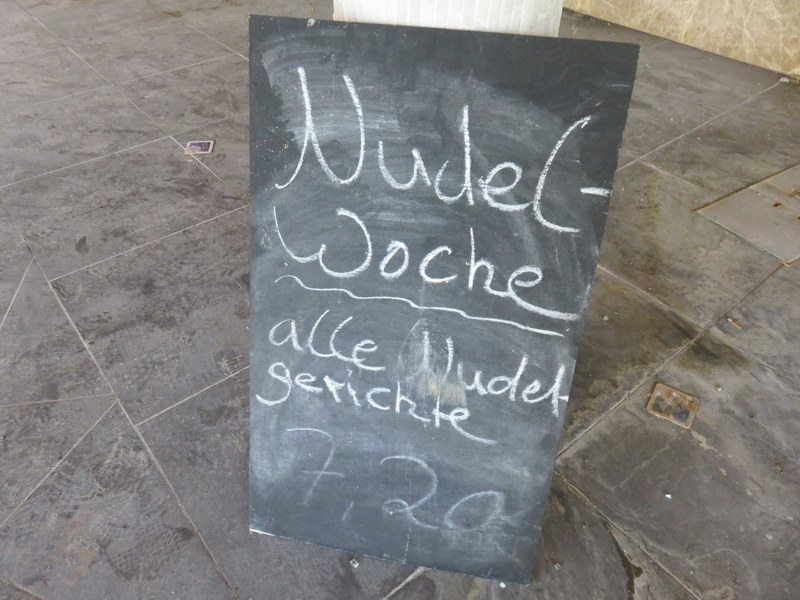 Nudel-
Woche
alle Nudel-
gerichte
7,20